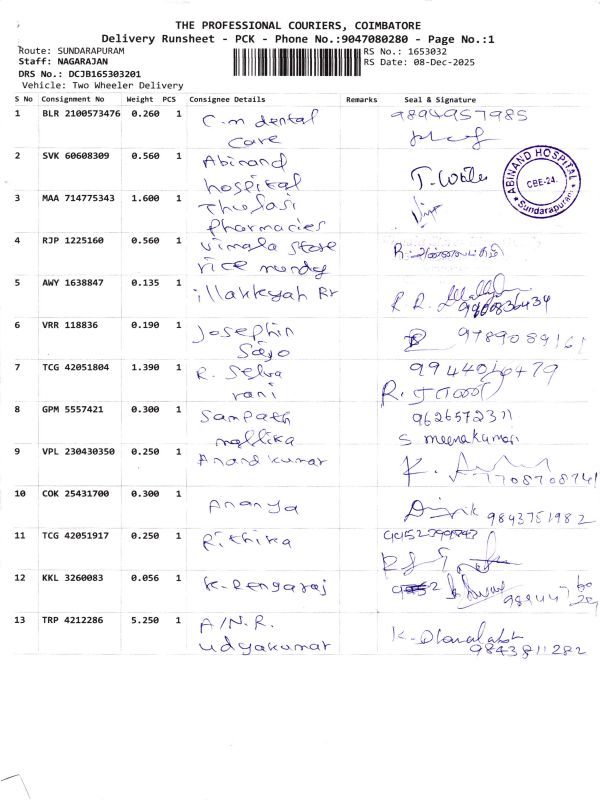 THE PROFESSIONAL COURIERS, COIMBATORE
Delivery Runsheet - PCK - Phone No.:9047080280 - Page No.:1
Route: SUNDARAPURAM RS No.: 1653032
Staff: NAGARAJAN RS Date: 08-Dec-2025
DRS No.: DCJB165303201
Vehicle: Two Wheeler Delivery
S No Consignment No Weight PCS Consignee Details Remarks Seal & Signature
1 BLR 2100573476 0.260 1 C.m dental 9894957985
care
2 SVK 60608309 0.560 1 Abinand
hospital
ABINAND HOSPITAL
CBE-24.
Sundarapuram
3 MAA 714775343 1.600 1 Thulasi
pharmacies
4 RJP 1225160 0.560 1 vimala store
rice mundy
5 AWY 1638847 0.135 1 illakkeyah Rr R R.
9900836434
6 VRR 118836 0.190 1 Josephin 9789089161
Sajo
7 TCG 42051804 1.390 1 R. Selva
rani R. ராணி
8 GPM 5557421 0.300 1 Sampath 9626572311
mallika S meenakumari
9 VPL 230430350 0.250 1 Anand kumar K.
7708708741
10 COK 25431700 0.300 1 Ananya 9843751982
11 TCG 42051917 0.250 1 Rithika
12 KKL 3260083 0.056 1 K. Rengaraj
13 TRP 4212286 5.250 1 A/N.R.
udyakumar 9843811282